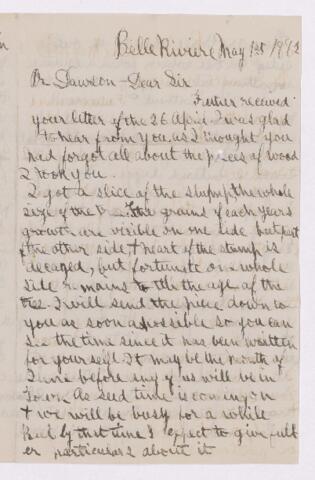 Belle Riviere May 1st 1872
Dr Dawson Dear Sir
Father received
your letter of the 26 April I was glad
to hear from you, as I thought you
had forgot all about the pieces of wood
I took you
I got a slice of the stump, the whole
size of the the grains of each years
growth are visible on one side but part
of the other side, + heart of the stump is
decayed, but fortunate one whole
side remains to tell the age of the
tree. I will send the piece down to
you as soon as possible so you can
see the time since it has been written
for your self. It may be the month of
June before any of us will be in
Town. As Sed time is coming on
+ we will be busy for a while
but by that time I expect to give full
er particulars about it